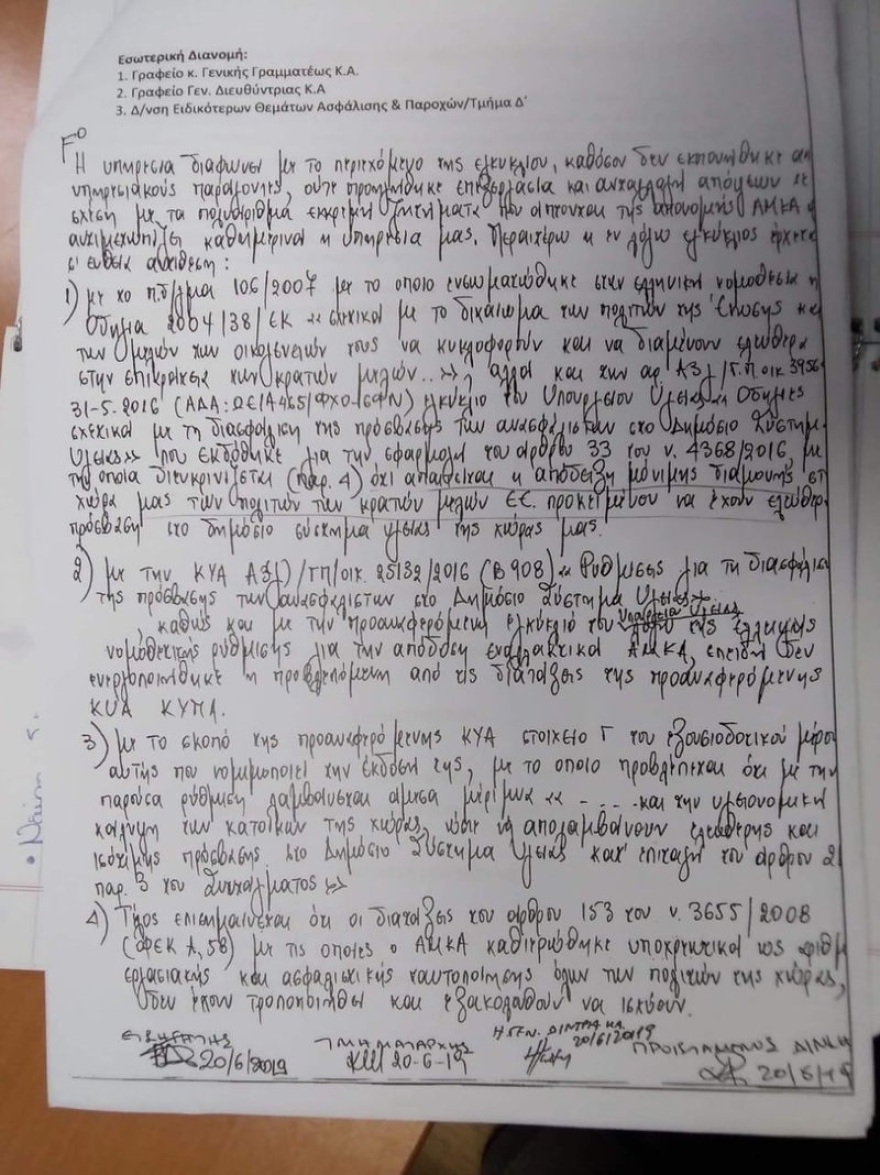 Εσωτερική Διανομή:
1. Γραφείο κ. Γενικής Γραμματέως Κ.Α.
2. Γραφείο Γεν. Διευθύντριας Κ.Α
3. Δ/νση Ειδικότερων Θεμάτων Ασφάλισης & Παροχών/Τμήμα Δ΄
Η υπηρεσία διαφωνεί με το περιεχόμενο της εγκυκλίου, καθόσον δεν εκπονήθηκε
υπηρεσιακούς παράγοντες, ούτε προηγήθηκε επεξεργασία και ανταλλαγή απόψεων σε
σχέση με τα πολυάριθμα εκκρεμή ζητήματα που άπτονται της απονομής ΑΜΚΑ
αντιμετωπίζει καθημερινά η υπηρεσία μας. Περαιτέρω η εν λόγω εγκύκλιος έρχεται
σ' ευθεία αντίθεση:
1) με το π.δ/γμα 106/2007 με το οποίο ενσωματώθηκε στην ελληνική νομοθεσία η
Οδηγία 2004/38/ΕΚ «σχετικά με το δικαίωμα των πολιτών της Ένωσης και
των μελών των οικογενειών τους να κυκλοφορούν και να διαμένουν ελεύθερα
στην επικράτεια των κρατών μελών..», αλλά και την αρ. Α3γ/Γ.Π.οικ.3956
31-5.2016 εγκύκλιο του Υπουργείου Υγείας «Οδηγίες
σχετικά με τη διασφάλιση της πρόσβασης των ανασφάλιστων στο Δημόσιο Σύστημα
Υγείας» που εκδόθηκε για την εφαρμογή του άρθρου 33 του ν. 4368/2016, με
την οποία διευκρινίζεται (παρ. 4) ότι απαιτείται η απόδειξη μόνιμης διαμονής στη
χώρα μας των πολιτών των κρατών μελών ΕΕ. προκειμένου να έχουν ελεύθερη
πρόσβαση στο δημόσιο σύστημα υγείας της χώρας μας.
2) με την ΚΥΑ /ΓΠ/οικ. 25132/2016 (Β 908) «Ρυθμίσεις για τη διασφάλιση
της πρόσβασης των ανασφαλίστων στο Δημόσιο Σύστημα Υγείας»
καθώς και με την προαναφερόμενη εγκύκλιο του Υπουργείου Υγείας λόγω της έλλειψης
νομοθετικής ρύθμισης για την απόδοση εναλλακτικά ΑΜΚΑ, επειδή δεν
ενεργοποιήθηκε η προβλεπόμενη από τις διατάξεις της προαναφερόμενης
ΚΥΑ ΚΥΠΑ.
3) με το σκοπό της προαναφερόμενης ΚΥΑ στοιχείο Γ του εξουσιοδοτικού μέρους
αυτής που νομιμοποιεί την έκδοσή της, με το οποίο προβλέπεται ότι με την
παρούσα ρύθμιση λαμβάνεται άμεσα μέριμνα «- . . . - και την υγειονομική
κάλυψη των κατοίκων της χώρας, ώστε να απολαμβάνουν ελεύθερης και
ισότιμης πρόσβασης στο Δημόσιο Σύστημα Υγείας κατ' επιταγή του άρθρου 21
παρ. 3 του Συντάγματος»
4) Τέλος επισημαίνεται ότι οι διατάξεις του άρθρου 153 του ν. 3655/2008
(ΦΕΚ Α, 58) με τις οποίες ο ΑΜΚΑ καθιερώθηκε υποχρεωτικά ως αριθμ
εργασιακής και ασφαλιστικής ταυτοποίησης όλων των πολιτών της χώρας,
δεν έχουν τροποποιηθεί και εξακολουθούν να ισχύουν.
ΕΙΣΗΓΗΤΗΣ ΤΜΗΜΑΤΑΡΧΗΣ Η ΓΕΝ. Δ/ΝΤΡΙΑ ΚΑ ΠΡΟΙΣΤΑΜΕΝΟΣ Δ/ΝΣΗΣ
20/6/2019 20-6-19 20/6/2019 20/6/19